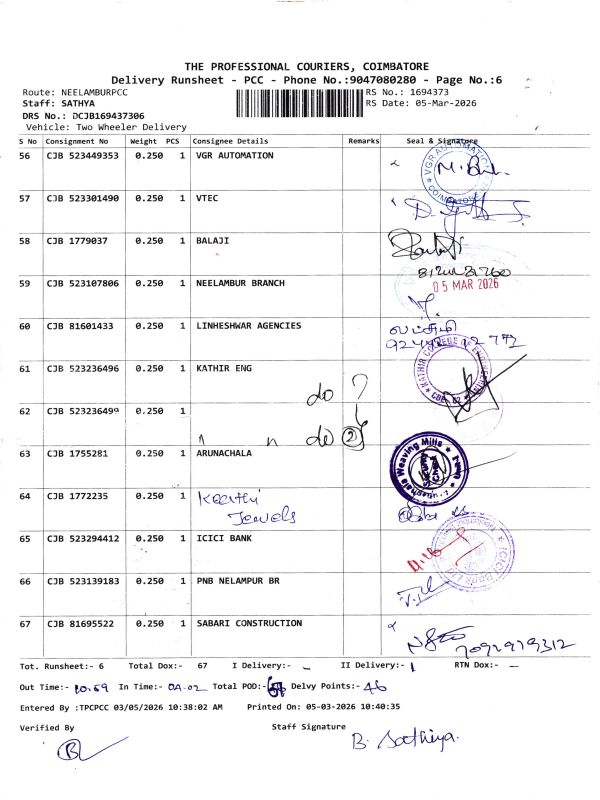 THE PROFESSIONAL COURIERS, COIMBATORE
Delivery Runsheet - PCC - Phone No.:9047080280 - Page No.:6
Route: NEELAMBURPCC RS No.: 1694373
Staff: SATHYA RS Date: 05-Mar-2026
DRS No.: DCJB169437306
Vehicle: Two Wheeler Delivery
S No Consignment No Weight PCS Consignee Details Remarks Seal & Signature
56 CJB 523449353 0.250 1 VGR AUTOMATION
57 CJB 523301490 0.250 1 VTEC
58 CJB 1779037 0.250 1 BALAJI
59 CJB 523107806 0.250 1 NEELAMBUR BRANCH
05 MAR 2026
60 CJB 81601433 0.250 1 LINHESHWAR AGENCIES
லட்சுமி
61 CJB 523236496 0.250 1 KATHIR ENG
KATHIR COLLEGE OF ENGINEERING
do
62 CJB 523236499 0.250 1
do 2
63 CJB 1755281 0.250 1 ARUNACHALA
Weaving Mills
64 CJB 1772235 0.250 1 Keerthi
Jewels
65 CJB 523294412 0.250 1 ICICI BANK
ICICI Bank Ltd
66 CJB 523139183 0.250 1 PNB NELAMPUR BR
67 CJB 81695522 0.250 1 SABARI CONSTRUCTION
7092979312
Tot. Runsheet:- 6 Total Dox:- 67 I Delivery:- - II Delivery:- 1 RTN Dox:- -
Out Time:- 10.59 In Time:- 04-02 Total POD:- Delvy Points:- 46
Entered By :TPCPCC 03/05/2026 10:38:02 AM Printed On: 05-03-2026 10:40:35
Verified By Staff Signature
B. Sathiya.